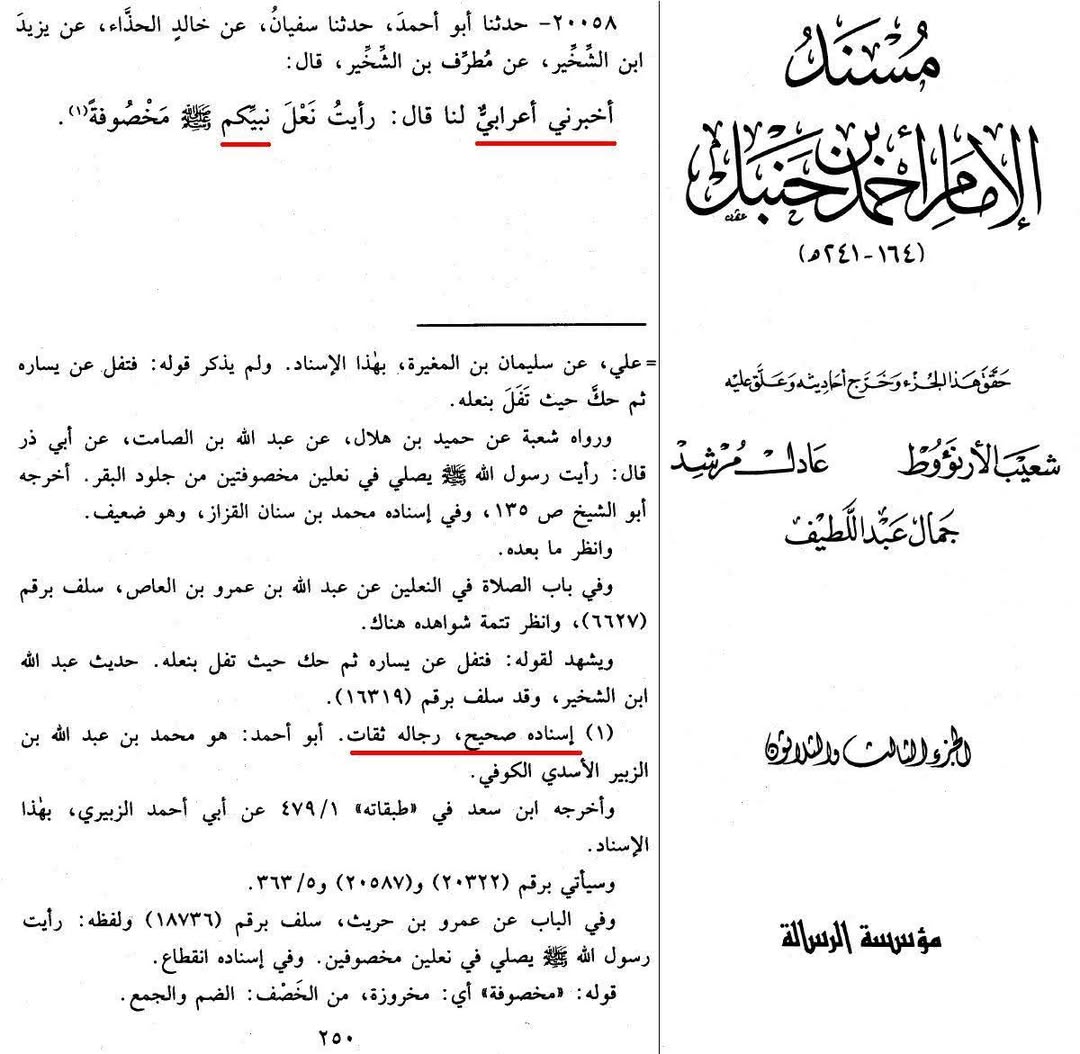 مُسْنَدُ
الإمَامِ أَحْمَدَ بْنِ حَنْبَلٍ
(١٦٤-٢٤١ه)
حَقَّقَ هَذا الجُزء وَخَرَّج أحَادِيثه وَعَلَّق عَليْه
شعَيبَ الأرنَؤوُط عَادل مُرْشِد
جمَال عَبْد اللَّطيف
الجزء الثالث والثلاثون
مؤسسة الرسالة
٢٠٠٥٨- حدثنا أبو أحمدَ، حدثنا سفيانُ، عن خالدٍ الحذَّاء، عن يزيدَ
ابن الشِّخِّير، عن مُطرِّف بن الشِّخِّير، قال:
أخبرني أعرابيٌّ لنا قال: رأيتُ نَعْلَ نبيِّكم ﷺ مَخْصُوفةً(١).
=علي، عن سليمان بن المغيرة، بهٰذا الإسناد. ولم يذكر قوله: فتفل عن يساره
ثم حكَّ حيث تَفَلَ بنعله.
ورواه شعبة عن حميد بن هلال، عن عبد الله بن الصامت، عن أبي ذر
قال: رأيت رسول الله ﷺ يصلي في نعلين مخصوفتين من جلود البقر. أخرجه
أبو الشيخ ص ١٣٥، وفي إسناده محمد بن سنان القزاز، وهو ضعيف.
وانظر ما بعده.
وفي باب الصلاة في النعلين عن عبد الله بن عمرو بن العاص، سلف برقم
(٦٦٢٧)، وانظر تتمة شواهده هناك.
ويشهد لقوله: فتفل عن يساره ثم حك حيث تفل بنعله. حديث عبد الله
ابن الشخير، وقد سلف برقم (١٦٣١٩).
(١) إسناده صحيح، رجاله ثقات. أبو أحمد: هو محمد بن عبد الله بن
الزبير الأسدي الكوفي.
وأخرجه ابن سعد في «طبقاته» ٤٧٩/١ عن أبي أحمد الزبيري، بهٰذا
الإسناد.
وسيأتي برقم (٢٠٣٢٢) و(٢٠٥٨٧) و٣٦٣/٥.
وفي الباب عن عمرو بن حريث، سلف برقم (١٨٧٣٦) ولفظه: رأيت
رسول الله ﷺ يصلي في نعلين مخصوفين. وفي إسناده انقطاع.
قوله: «مخصوفة» أي: مخروزة، من الخَصْف: الضم والجمع.
٢٥٠